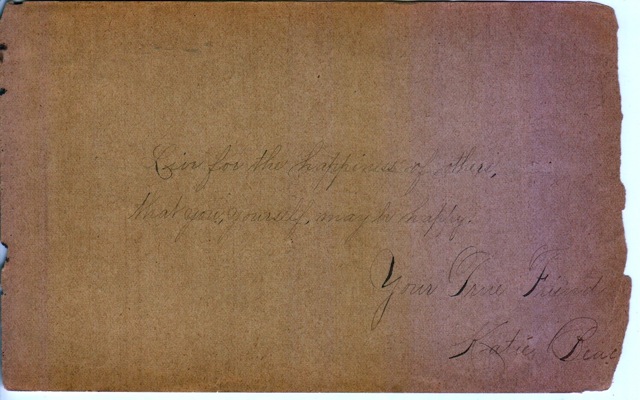 Live for the happiness of others,
that you, yourself, may be happy.
Your True Friend
Katie